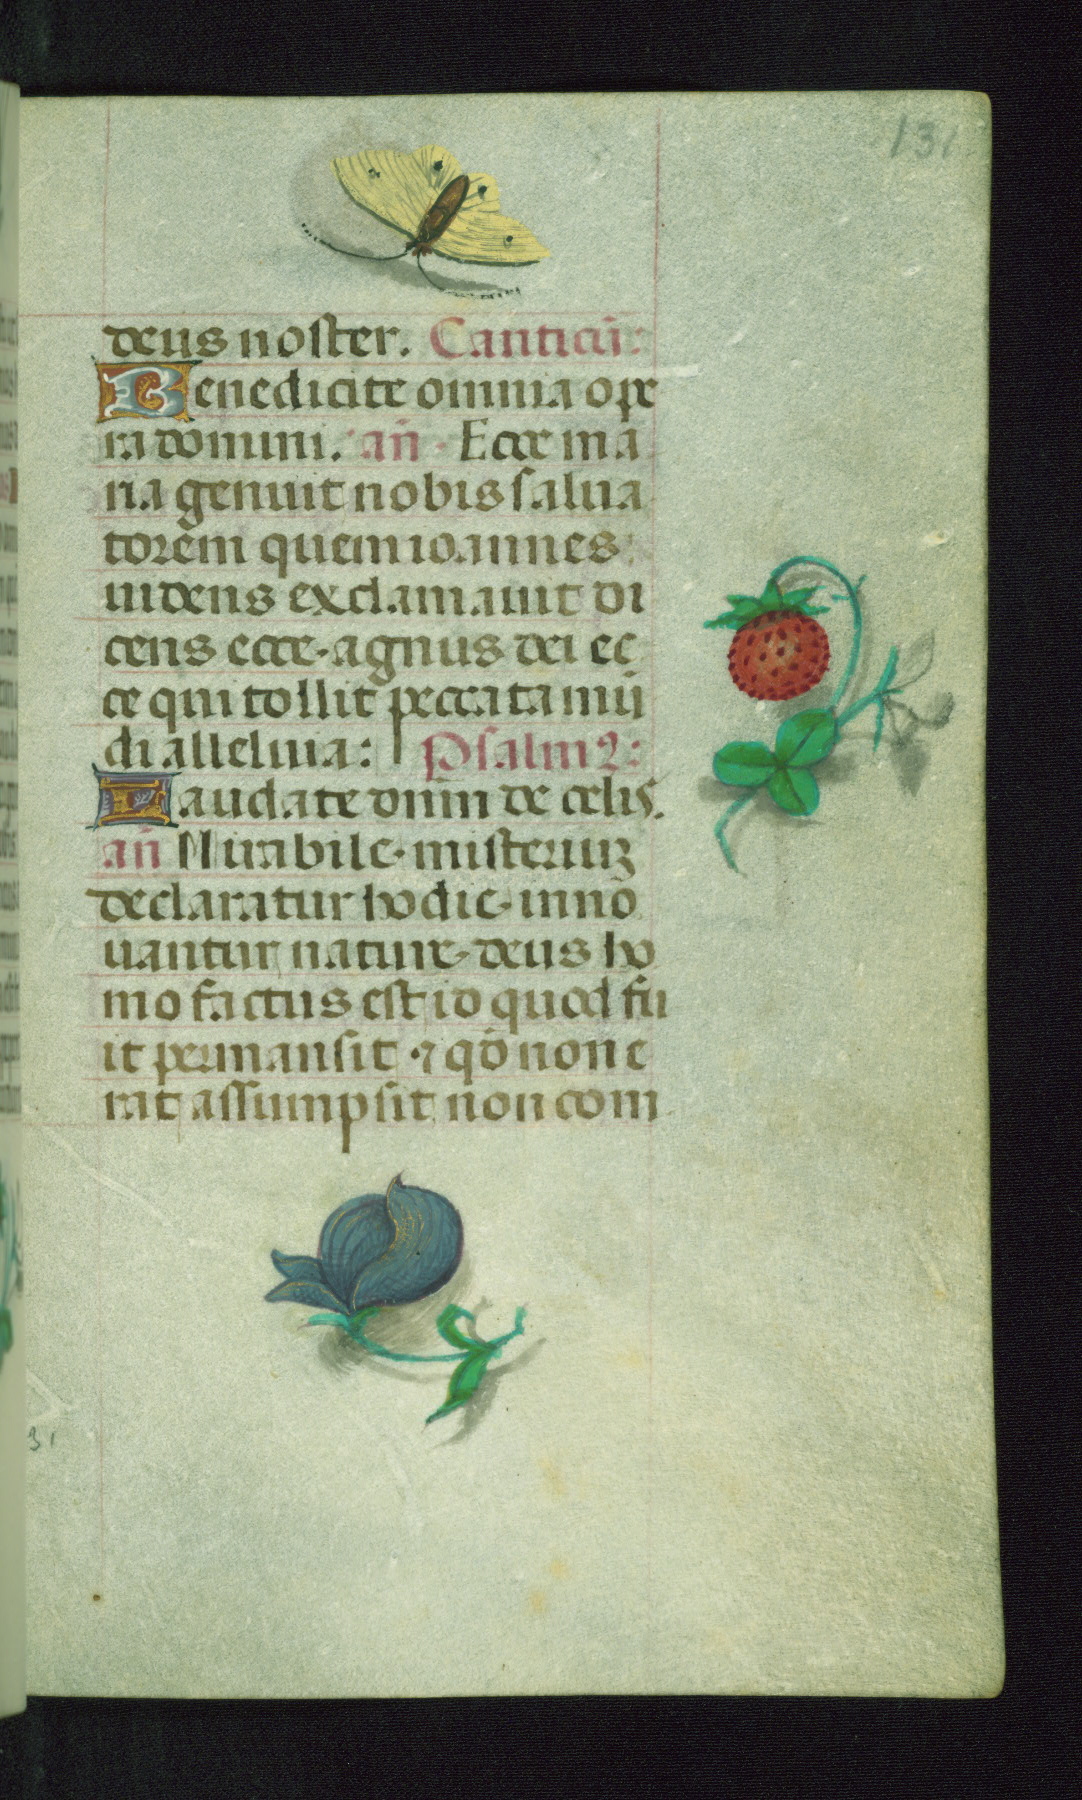 131
deus noster. Canticū:
Benedicite omnia ope
ra domini. an̄. Ecce ma
ria genuit nobis salua
torem quem ioannes
uidens exclamauit di
cens ecce agnus dei ec
ce qui tollit peccata mū
di alleluia: Psalmꝰ:
Laudate dnm̄ de celis.
an̄ Mirabile misteriuꝫ
declaratur hodie inno
uantur nature deus ho
mo factus est id quod fu
it permansit ⁊ qđ non e
rat assumpsit non com